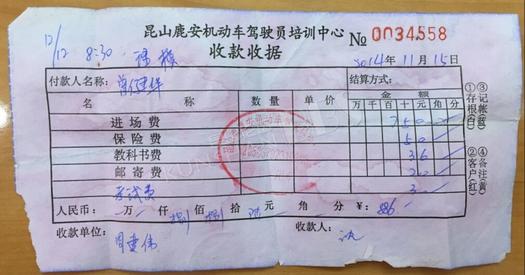 昆山鹿安机动车驾驶员培训中心
收款收据
№ 0034558
12/12 8:30
2014年11月15日
付款人名称:
结算方式:
名 称 数量 单价 金额
万 千 百 十 元 角 分
进场费
保险费 50
教科书费 36
邮寄费
考试费
人民币: 万 仟 捌 佰 捌 拾 陆 元 角 分 ¥: 886
收款单位: 周建伟 收款人: 沈
①存根(白) ③记帐(蓝)
②客户(红) ④备注(黄)